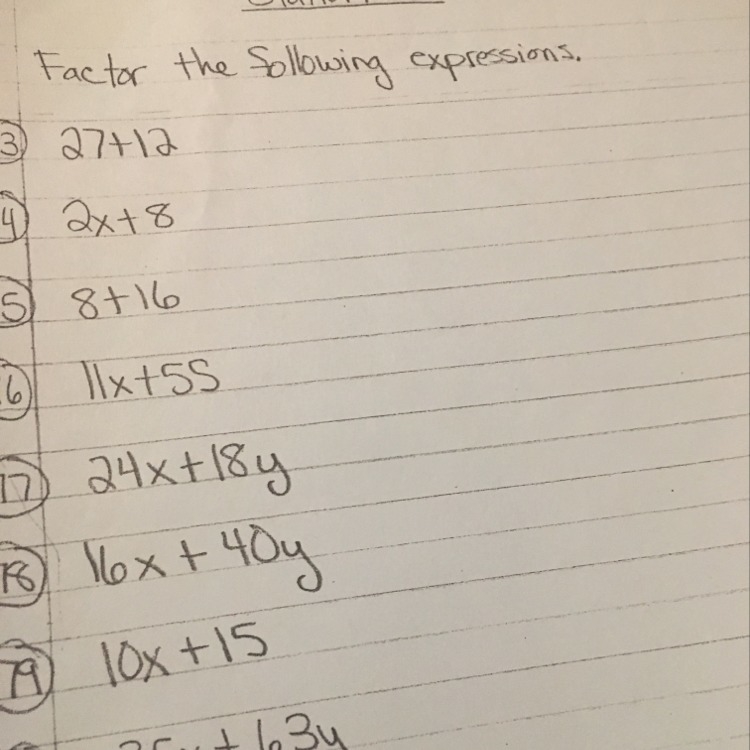 Factor the following expressions.
3 27+12
4 2x+8
5 8+16
6 11x+55
17 24x+18y
18 16x + 40y
19 10x+15
+ 63y